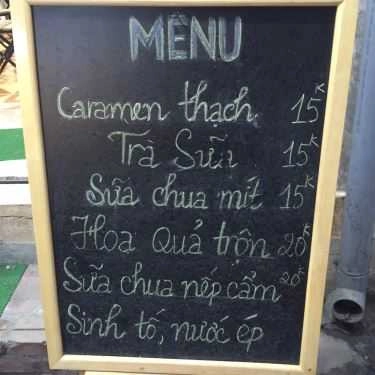 MENU
Caramen thạch 15K
Trà Sữa 15K
Sữa chua mít 15K
Hoa Quả trộn 20K
Sữa chua nếp cẩm 20K
Sinh tố, nước ép